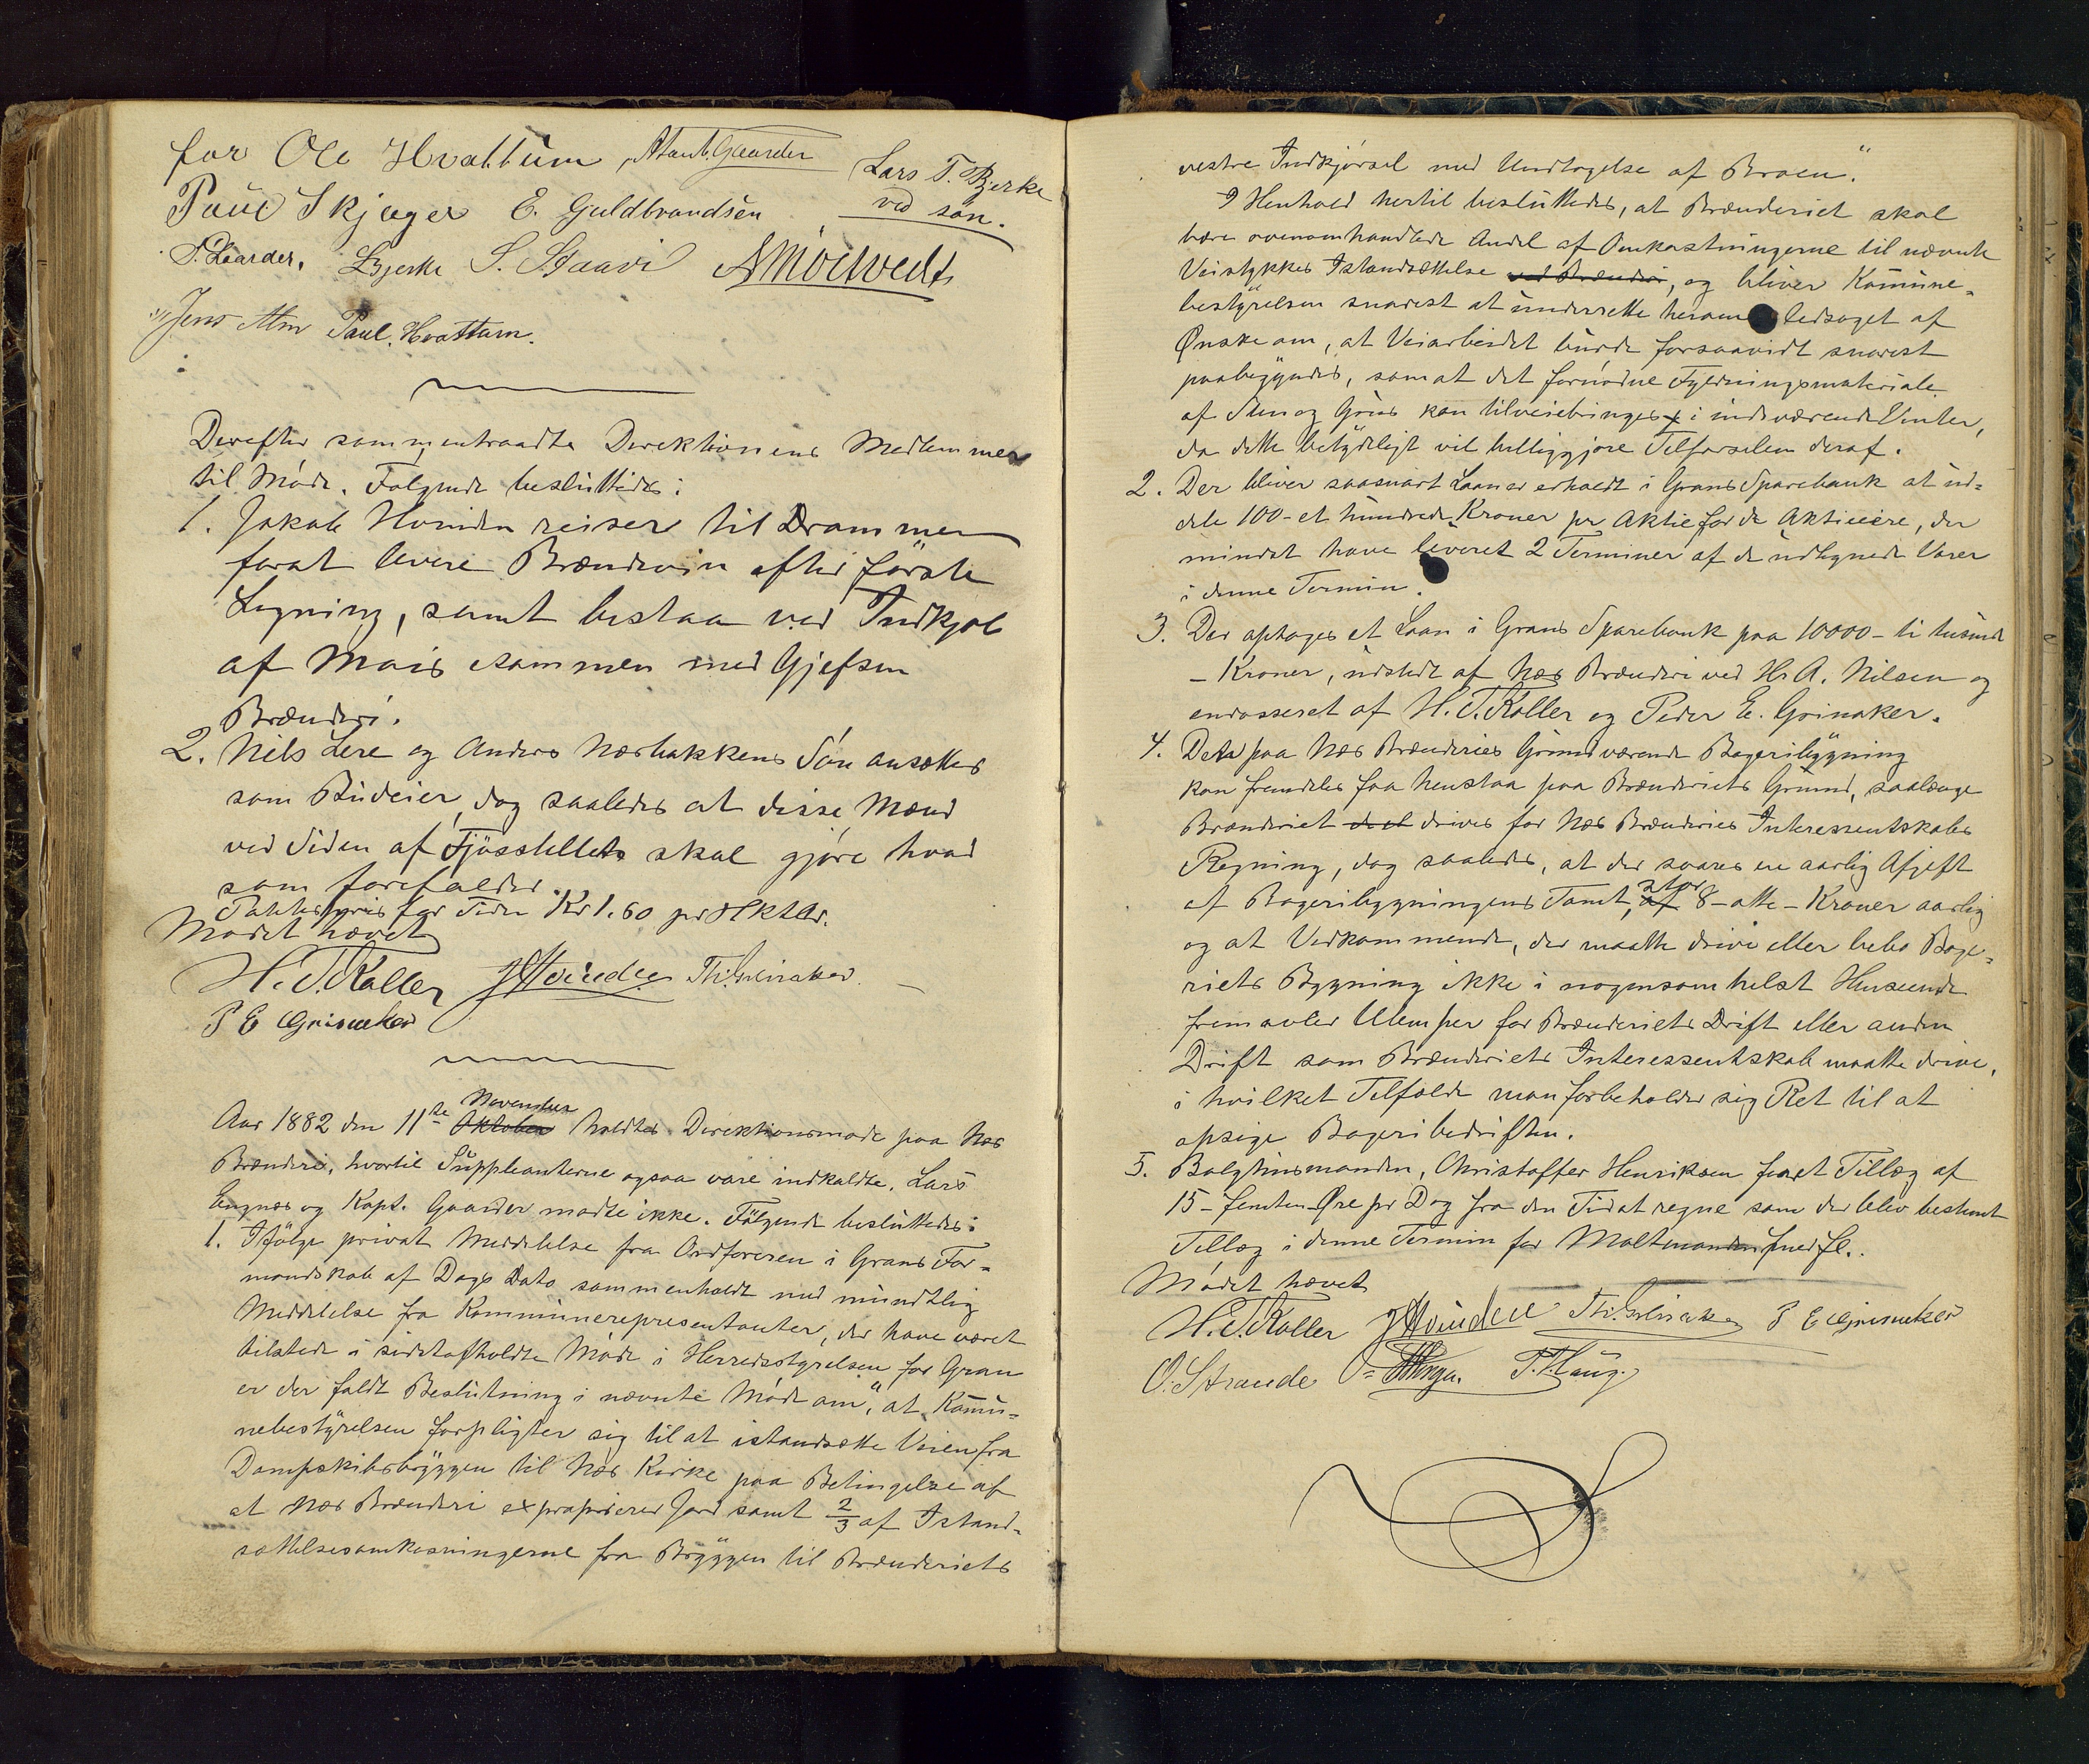 for Ole Hvattum, A Gaarder Lars T. Bjerke
Paul Skjager E. Guldbrandsen ved søn.
P. Gaarder, LBjerke S. Staavi AMolvedt
Jens Alm Paul. Hvattum.
Derefter sammentraadte Direktionens Medlemmer
til Møde. Følgende besluttedes:
1. Jakob Hvinden reiser til Drammen
forat levere Brændevin efter første
Ligning, samt bistaa ved Indkjøb
af Mais sammen med Gjefsen
Brænderi.
2. Nils Lere og Anders Næsbakkens Søn ansættes
som Budeier, dog saaledes at disse Mænd
ved Siden af Fjøsstellets skal gjøre hvad
som forefalder.
Potetespris for Tiden Kr 1.60 pr Hktltr.
Mødet hævet
H. T. Koller JHvinden Th: Grinaker.
P E Grinaker
November
Aar 1882 den 11te Oktober holdtes Direktionsmøde paa Næs
Brænderi, hvortil Suppleanterne ogsaa vare indkaldte. Lars
Engnæs og Kapt. Gaarder mødte ikke. Følgende besluttedes:
1. Ifølge privat Meddelelse fra Ordføreren i Grans For-
mandskab af Dags Dato sammenholdt med mundtlig
Meddelelse fra Kommunerepresentanter, der have været
tilstede i sidstafholdte Møde i Herredsstyrelsen for Gran
er der faldt Beslutning i nævnte Møde om, "at Kommu-
nebestyrelsen forpligter sig til at istandsætte Veien fra
Dampskibsbryggen til Næs Kirke paa Betingelse af
at Næs Brænderi exproprierer Jord samt 2/3 af Istand-
sættelsesomkosningerne fra Bryggen til Brænderiets
vestre Indkjørsel med Undtagelse af Broen".
I Henhold hertil besluttedes, at Brænderiet skal
bære ovenomhandlede Andel af Omkostningerne til nævnte
Veistykkes Istandsættelse ved Brænderi, og bliver Kommune-
bestyrelsen snarest at underrette herom ledsaget af
Ønske om, at Veiarbeidet burde forsaavidt snarest
paabegyndes, som at det fornødne Fyldningsmateriale
af Sten og Grus kan tilveiebringes i indeværende Vinter,
da dette betydeligt vil billiggjøre Tilførselen deraf.
2. Der bliver saasnart Laan er erholdt i Grans Sparebank at ud-
dele 100 - et hundrede Kroner pr Aktie for de Aktieeiere, der
mindst have leveret 2 Terminer af de udlignede Varer
i denne Termin.
3. Der optages et Laan i Grans Sparebank paa 10000 - ti tusinde
- Kroner, udstedt af Næs Brænderi ved Hr A. Nilsen og
endosseret af H. T. Koller og Peder E. Grinaker.
4. Den paa Næs Brænderies Grund værende Bageribygning
kan fremdeles faa henstaa paa Brænderiets Grund, saalænge
Brænderiet drives for Næs Brænderies Interessentskabs
Regning, dog saaledes, at der svares en aarlig Afgift
stor
af Bageribygningens Tomt, af 8 - otte - Kroner aarlig
og at Vedkommende, der maatte drive eller bebo Bage-
riets Bygning ikke i nogensomhelst Henseende
fremavler Ulemper for Brænderiets Drift eller anden
Drift som Brænderiets Interessentskab maatte drive,
i hvilket Tilfælde man forbeholder sig Ret til at
opsige Bageribedriften.
5. Bølgtinsmanden, Christoffer Henriksen faaet Tillæg af
15 - femten Øre pr Dag fra den Tid at regne som der blev bestemt
Tillæg i denne Termin for Maltmanden m. fl..
Mødet hævet
H. T. Koller JHvinden Th: Grinaker P E Grinaker
O. Strande T. Haug.